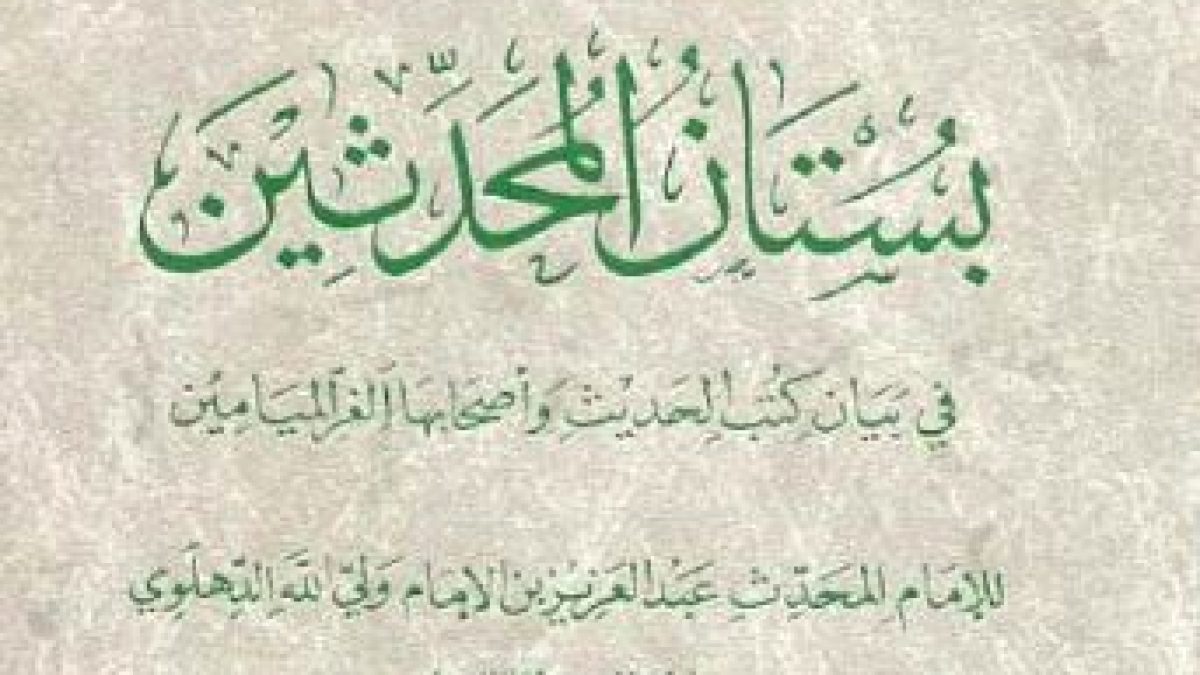 بُسْتَانُ المُحَدِّثِينَ
في بَيَانِ كُتُبِ الحَدِيْثِ وَأصْحَابِهَا الغُرِّ المَيَامِيْن
للإمَامِ المحَدِّثِ عَبْد العَزِيْز بن الإمَام وَليّ اللهِ الدِّهلَوي